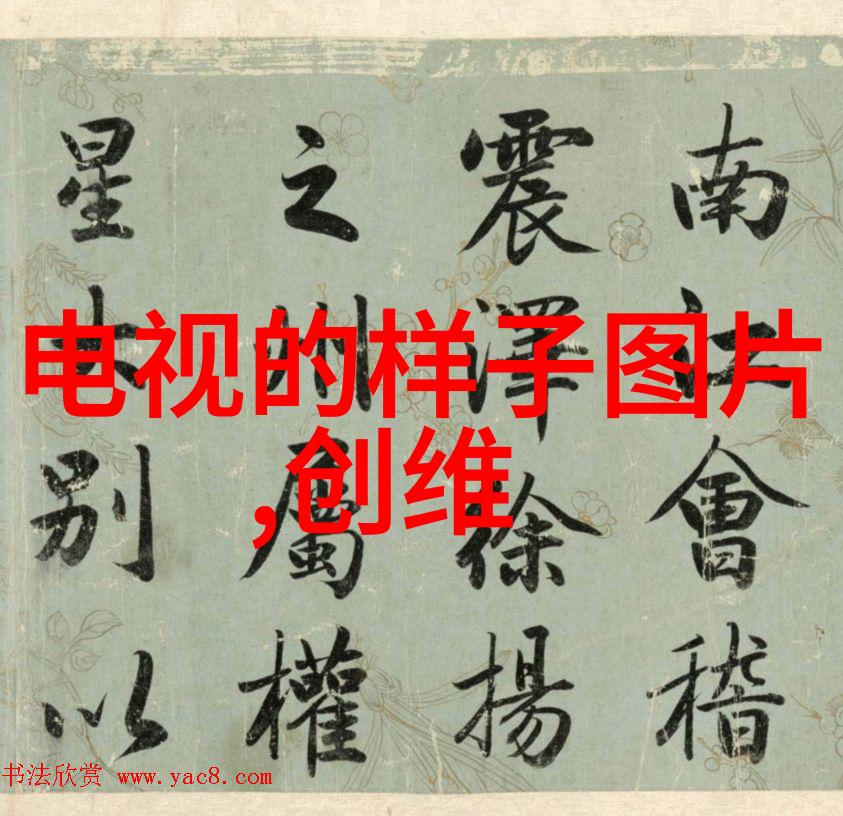 南江會稽
震澤徐揚
之州屬權
星別以
电视的样子图片
,创维
书法欣赏 www.yac8.com